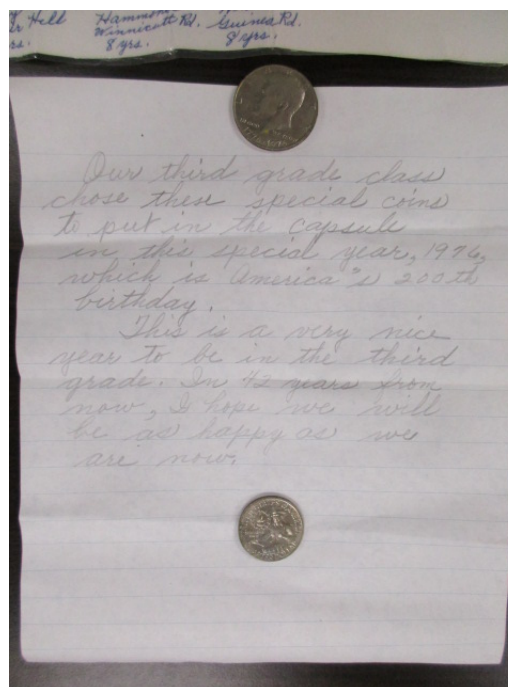 Held Hammond
Winnicutt Rd. Guinea Rd.
8 yrs. 8 yrs.
Our third grade class
chose these special coins
to put in the capsule
in this special year, 1976,
which is America"s 200th
birthday.
This is a very nice
year to be in the third
grade. In 42 years from
now, I hope we will
be as happy as we
are now.